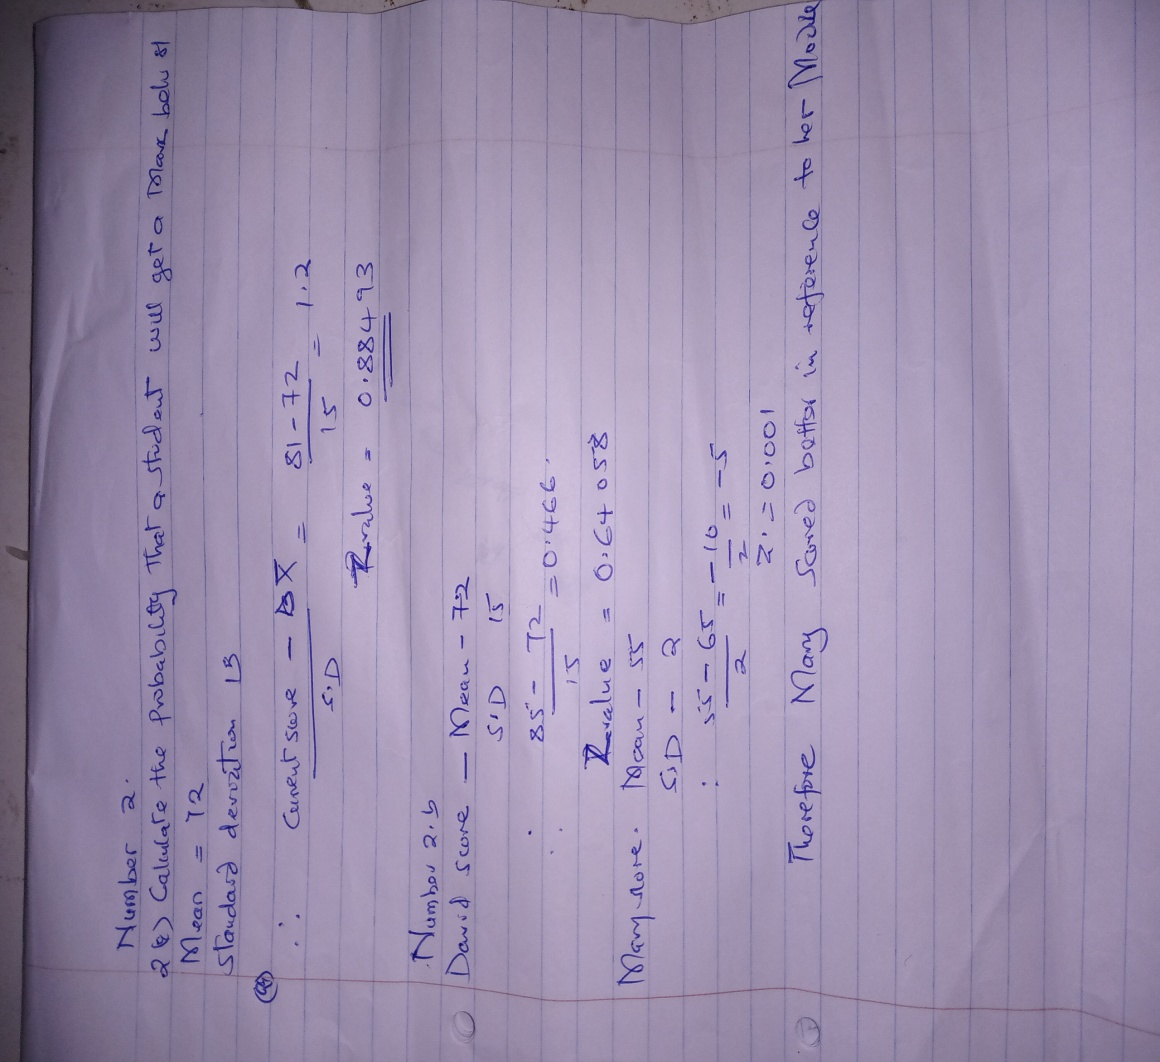 Number 2.
2 a) Calculate the probability that a student will get a mark belw 81
Mean = 72
Standard deviation 15
∴ Current score - X̄ = 81 - 72 = 1.2
S.D 15
P value = 0.88493
Number 2.b
David score - Mean - 72
S.D 15
∴ 85 - 72 = 0.466.
15
P value = 0.64058
Mary score. Mean - 55
S.D - 2
∴ 55 - 65 = -10 = -5
2 2
Z. = 0.001
Therefore Mary Scored better in reference to her